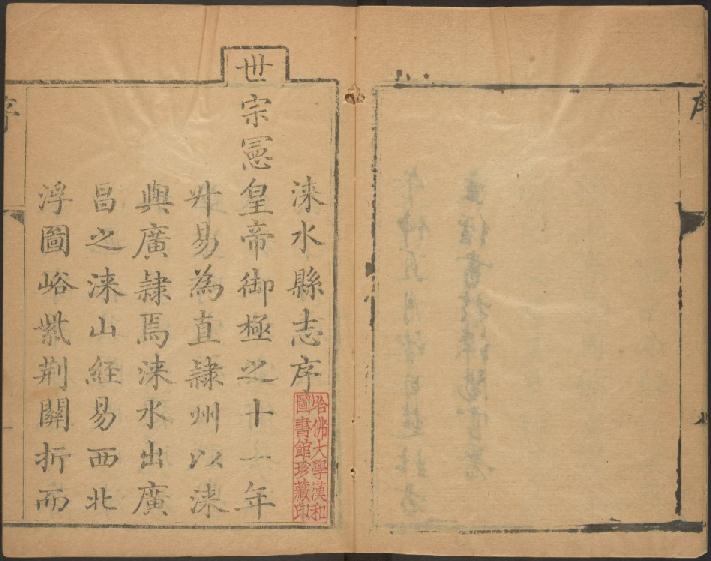 涞水縣志序
世宗憲皇帝御極之十一年
升易為直隸州以涞
與廣隸焉涞水出廣
昌之涞山經易西北
浮圖峪紫荊關折而
哈佛大學漢和
圖書館珍藏印